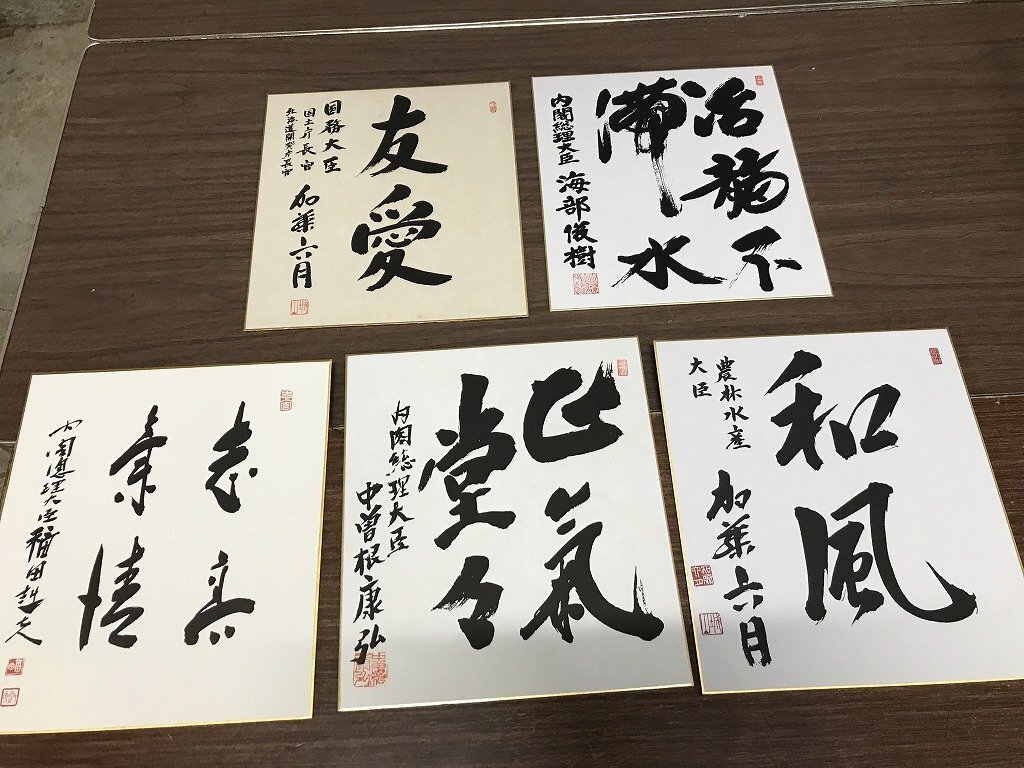 友愛
国務大臣
国土庁長官
北海道開発庁長官
加藤六月
活龍不
滞水
内閣総理大臣 海部俊樹
内閣总理大臣福田赳夫
正氣
堂々
内閣総理大臣
中曽根康弘
和風
農林水産
大臣
加藤六月